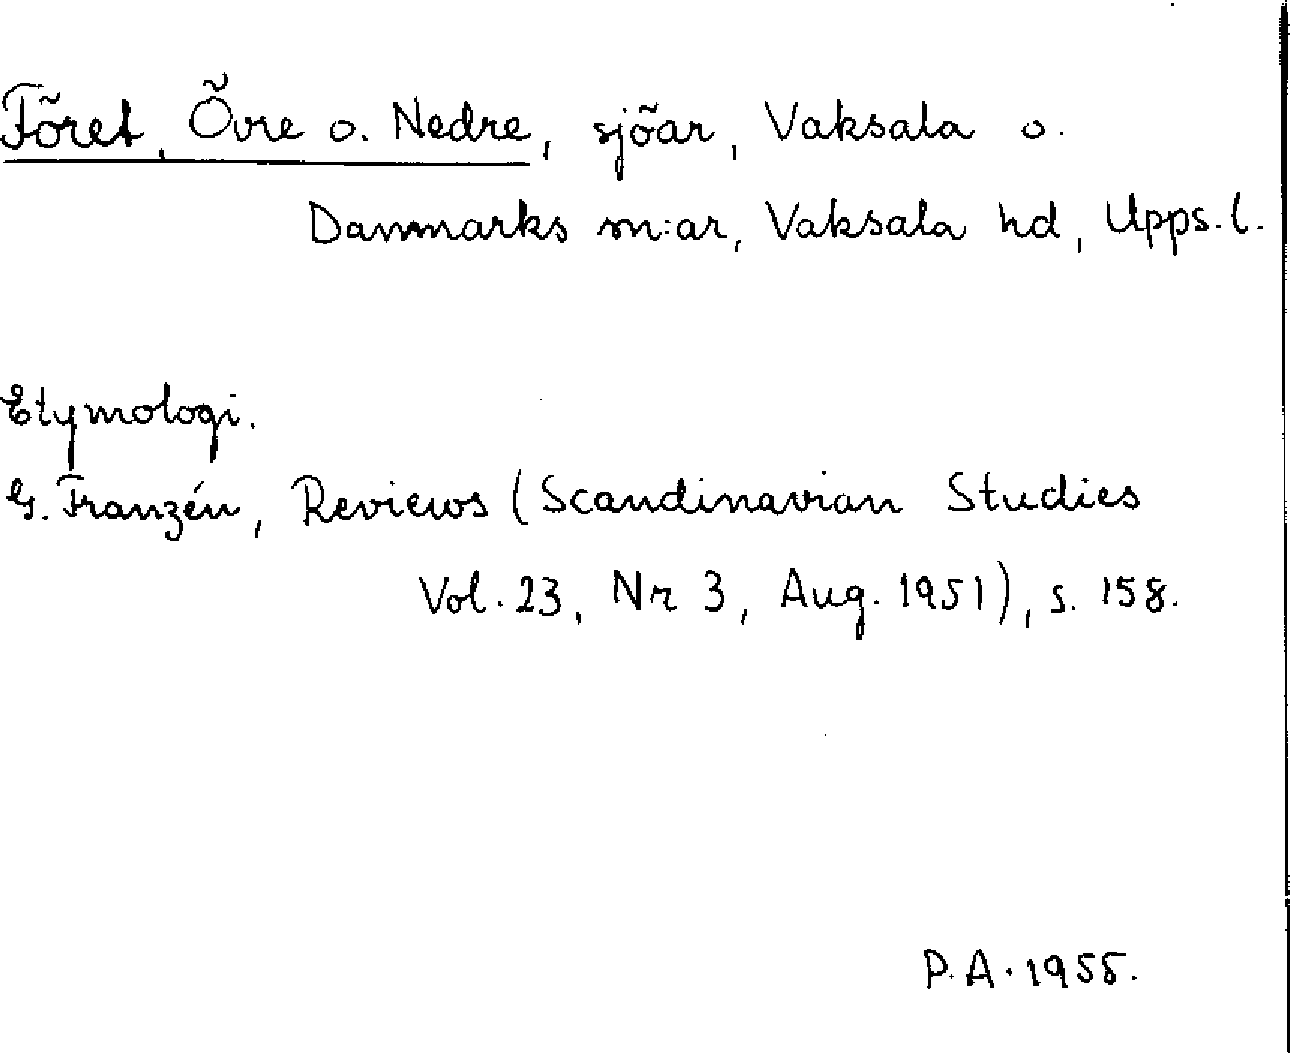 Föret, Övre o. Nedre, sjöar, Vaksala o.
Danmarks sn:ar, Vaksala hd, Upps. l.
Etymologi.
G. Franzén, Reviews (Scandinavian Studies
Vol. 23, Nr 3, Aug. 1951), s. 158.
P. A. 1955.